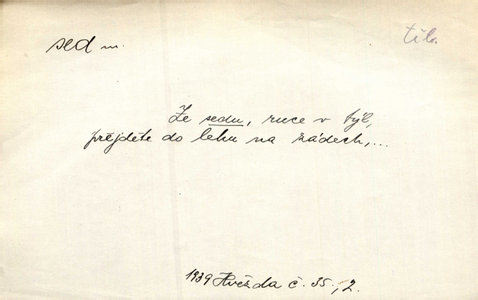 sed m.
těl.
Ze sedu, ruce v týl,
přejděte do lehu na zádech,...
1939 Hvězda č. 35.,2.